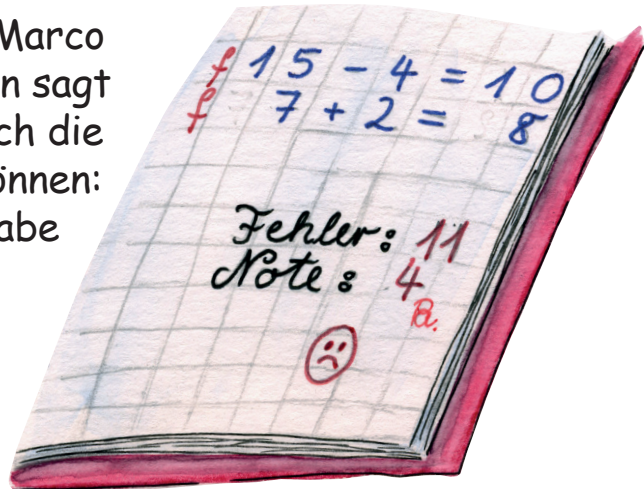 Marco
n sagt
ch die
önnen:
abe
f 15 - 4 = 10
f 7 + 2 = 8
Fehler: 11
Note: 4
B.